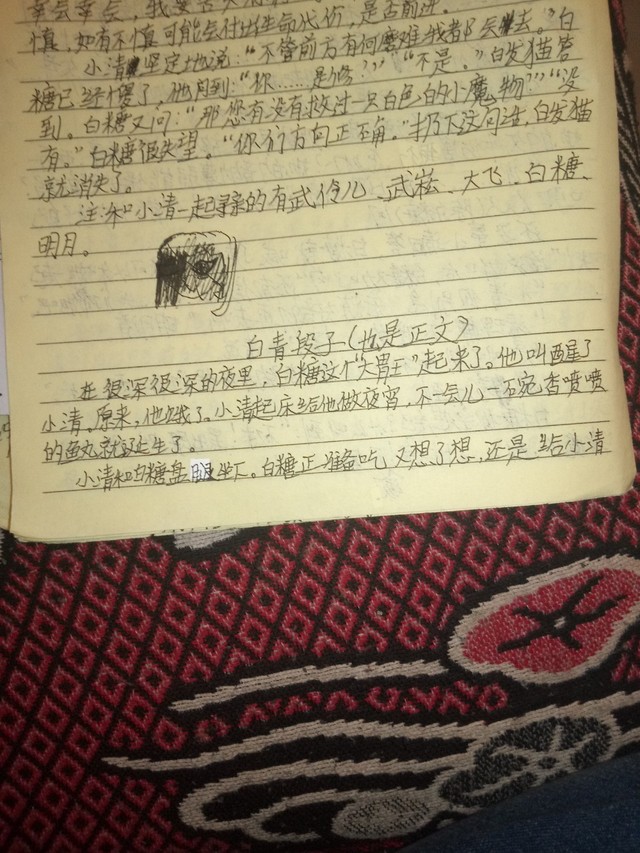 幸会幸会，我要
慎，如有不慎可能会付出生命代价，是否前进。
小清坚定地说：“不管前方有何磨难我都会去。”白
糖已经傻了，他问到：“你……是修？”“不是。”白发猫答
到。白糖又问：“那您有没有救过一只白色的小魔物”“没
有。”白糖很失望。“你们方向正确。”扔下这句话，白发猫
就消失了。
注：和小清一起寻亲的有武伶儿、武崧、大飞、白糖、
明月。
白青段子（也是正文）
在很深很深的夜里，白糖这个“大胃王”起来了。他叫醒了
小清，原来，他饿了。小清起床给他做夜宵，不一会儿一碗香喷喷
的鱼丸就诞生了。
小清和白糖盘腿坐下。白糖正准备吃，又想了想，还是给小清